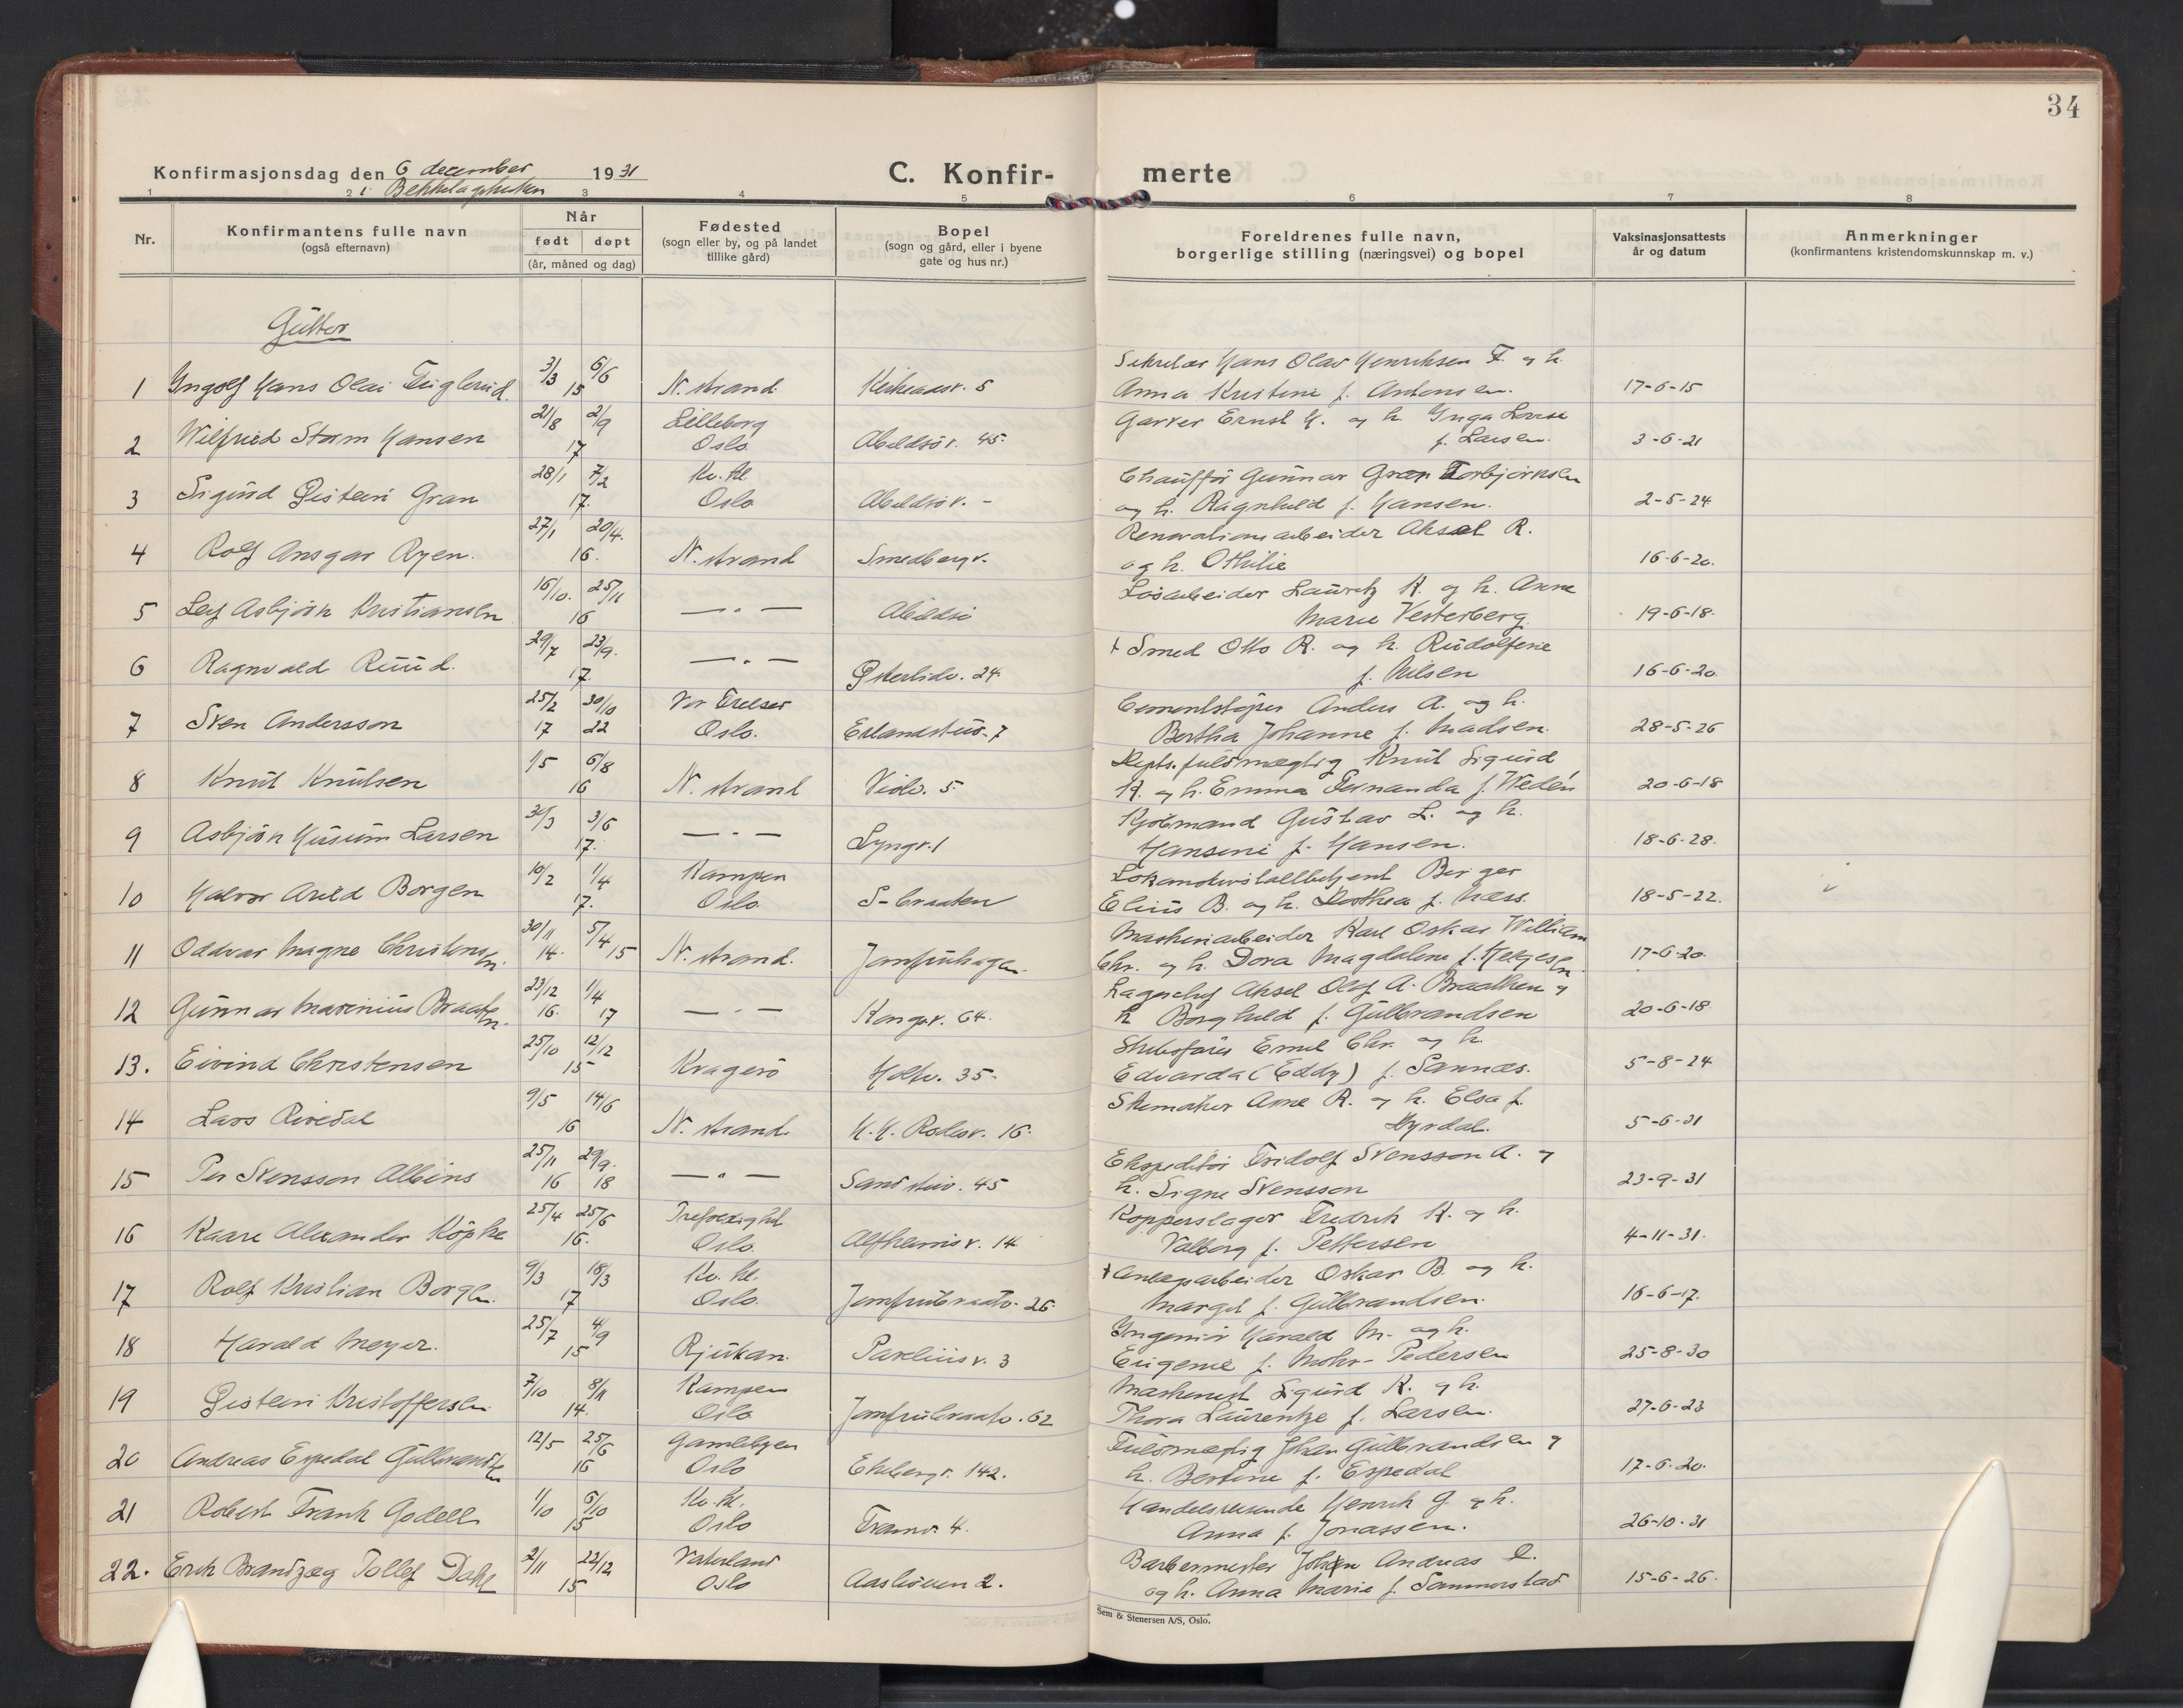 34
Konfirmasjonsdag den 6 december 1931
i Bekkelagskirken
C. Konfirmerte
1 2 3 4 5 6 7 8
Nr.
Konfirmantens fulle navn
(også efternavn)
Når
født døpt
(år, måned og dag)
Fødested
(sogn eller by, og på landet
tillike gård)
Bopel
(sogn og gård, eller i byene
gate og hus nr.)
Foreldrenes fulle navn,
borgerlige stilling (næringsvei) og bopel
Vaksinasjonsattests
år og datum
Anmerkninger
(konfirmantens kristendomskunnskap m. v.)
Gutter
1 Ingolf Hans Olai Fuglerud. 3/3 6/6 15 N. strand 5 Sekretær Hans Olav Henriksen F. og h.
Anna Kristine f. Antonsen. 17-6-15
2 Wilfried Storm Hansen 21/8 2/9 17 Lilleborg Oslo. Abildsöv. 45. Garver Ernst H. og h. Inga Lovise
f. Larsen. 3-6-21
3 Sigurd Øistein Gran 28/1 7/2 17. Kv. kl Oslo Abildsöv. - Chauffør Gunnar Gran Torbjörnsen
og h. Ragnhild f. Hansen. 2-5-24
4 Rolf Ansgar Ryen. 27/1 20/4. 16. N. strand Smedbergv. Renovationsarbeider Aksel R.
og h. Othilie 16-6-20.
5 Leif Asbjörn Kristiansen 16/10. 25/11 16 — " — Abildsö Lösarbeider Lauritz K. og h. Anna
Marie Vesterberg. 19-6-18.
6 Ragnvald Ruud. 29/7 23/9. 17. — " — Østerliv. 24 † Smed Otto R. og h. Rudolfine
f. Nilsen 16-6-20
7 Sven Andersson 25/2 17 30/10 22 Vor Frelser Oslo. Erlandstuv. 7 Cementstøper Anders A. og h.
Bertha Johanne f. Madsen. 28-5-26
8 Knut Knutsen 1/5 6/8 16 N. strand Violv. 5. Depts. fuldmægtig Knut Sigurd
K. og h. Emma Fernanda f. Wedén 20-6-18
9 Asbjörn Husum Larsen 30/3 3/6 17. — " — Lyngv. 1 Kjöbmand Gustav L. og h.
Hansine f. Hansen. 18-6-28.
10 Halvor Arild Borgen 10/2 1/4 17. Kampen Oslo. S-braaten Birger
Elius B. og h. Dorthea f. Næss. 18-5-22.
11 Oddvar Magne Christensen. 30/11 14. 5/4 15 N. strand. Jomfruhagen. Maskinarbeider Karl Oskar William
Chr. og h. Dora Magdalene f. Helgesen. 17-6-20.
12 Gunnar Marinius Braaten. 23/12 16. 1/4 17 — " — Kongsv. 64. Lagerchef Aksel Olaf A. Braathen og
h. Borghild f. Gulbrandsen 20-6-18
13. Eivind Christensen 25/10 12/12 15 Kragerö Holtv. 35. Skibsfører Emil Chr. og h.
Edvarda (Eddy) f. Sannæs. 5-8-24
14 Lars Rivedal 9/5 14/6 16 N. strand. H.H. Rodesv. 16. Skomaker Arne R. og h. Elsa f.
Dyrdal. 5-6-31
15 Per Svensson Albins 25/11 16 29/9. 18 — " — Sandstuv. 45 Ekspeditör Fridolf Svensson A. og
h. Signe Svensson 23-9-31
16 Kaare Alexander Köpke 25/4 25/6 16. Trefoldighed Oslo. Altheimsv. 14 Kopperslager Fredrik K. og h.
Valborg f. Pettersen 4-11-31.
17 Rolf Kristian Borgen. 9/3 18/3 17 Kv. kl. Oslo. Jomfrubraatv. 26. † Anlægsarbeider Oskar B. og h.
Margit f. Gulbrandsen. 16-6-17.
18 Harald Meyer. 25/7 4/9 15 Rjukan. Pareliusv. 3 Ingeniör Harald M. og h.
Eugenie f. Mohr-Pedersen 25-8-30
19 Øistein Kristoffersen 7/10 8/11 14. Kampen Oslo Jomfrubraatv. 62 Maskinist Sigurd K. og h.
Thora Laurentze f. Larsen. 27-6-23
20 Andreas Espedal Gulbrandsen 12/5 25/6 16 Gamlebyen Oslo Ekebergv. 142. Fuldmægtig Johan Gulbrandsen og
h. Bertine f. Espedal 17-6-20.
21 Robert Frank Godell 1/10 6/10 15 Kv. kl. Oslo Framv. 4. Handelsreisende Henrik G. og h.
Anna f. Jonassen. 26-10-31
22. Erik Brandzæg Tollef Dahl 2/11 22/12 15 Vaterland Oslo 2. Barbermester Johan Andreas
og h. Anna Marie f. Sammerstad 15-6-26.
Sem & Stenersen A/S, Oslo.